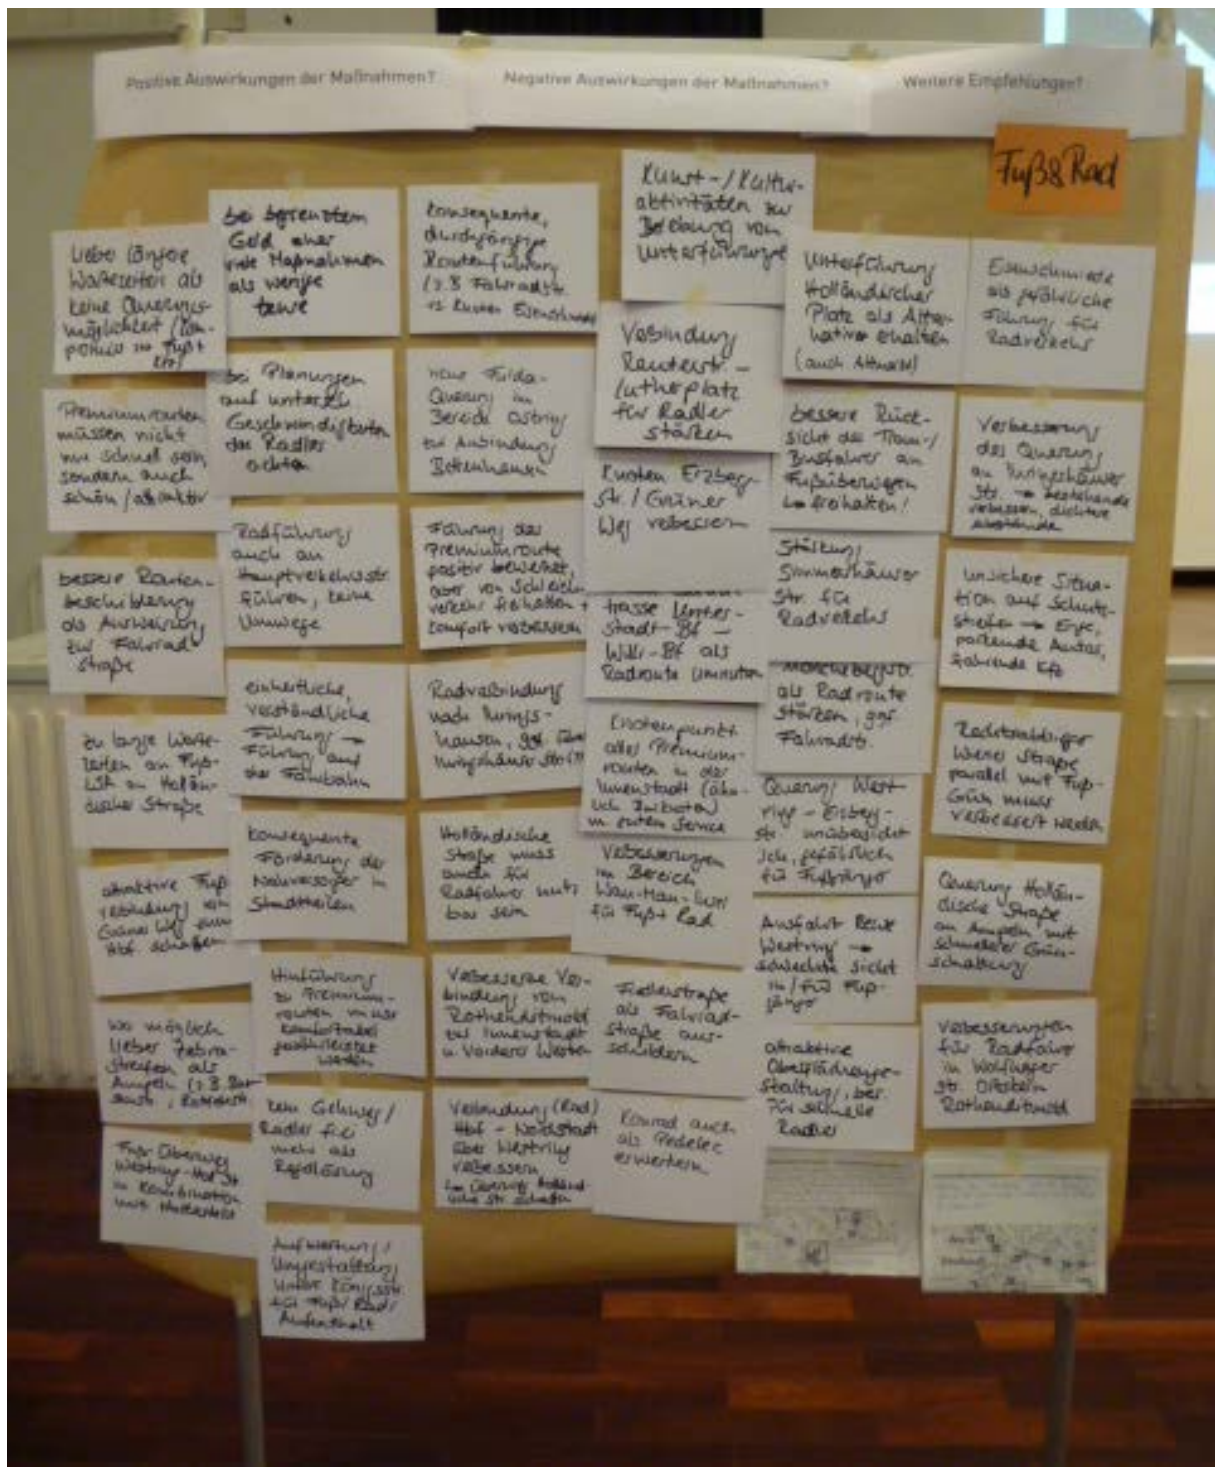 Positive Auswirkungen der Maßnahmen?
Negative Auswirkungen der Maßnahmen?
Weitere Empfehlungen?
Fuß & Rad
Lieber längere
Wartezeiten als
keine Querungs-
möglichkeit
Premiumrouten
müssen nicht
nur schnell sein,
sondern auch
schön / attraktiv
bessere Routen-
beschilderung
als Ausweisung
zur Fahrrad-
straße
zu lange Warte-
zeiten an Fuß-
LSA an Hollän-
discher Straße
attraktive Fuß-
verbindung
Grüner Weg zum
Hbf schaffen
wo möglich
lieber Zebra-
streifen als
Ampeln (z.B.
Fuß-Überweg
Westring-
in Kombination
mit
bei begrenztem
Geld eher
viele Maßnahmen
als wenige
teure
bei Planungen
auf untersch.
Geschwindigkeiten
der Radler
achten
Radführung
auch an
Hauptverkehrsstr.
führen, keine
Umwege
einheitliche,
verständliche
Führung →
Führung auf
der Fahrbahn
konsequente
Förderung der
Nahversorger in
Stadtteilen
Hinführung
zu Premium-
routen muss
komfortabel
gewährleistet
werden
kein Gehweg /
Radler frei
mehr als
Regellösung
Aufwertung /
Umgestaltung
Untere Königsstr.
für Fuß / Rad /
Aufenthalt
konsequente,
durchgängige
Routenführung
(z.B. Fahrradstr.
vs Knoten Eisenschmiede
neue Fulda-
Querung im
Bereich Ostring
zur Anbindung
Bettenhausen
Führung der
Premiumroute
positiv bewertet,
aber von Schleich-
verkehr freihalten +
Komfort verbessern
Radverbindung
nach Ihrings-
hausen, ggf. über
Ihringshäuser Str.
Holländische
Straße muss
auch für
Radfahrer nutz-
bar sein
Verbesserte Ver-
bindung von
Rothenditmold
zur Innenstadt
u. Vorderer Westen
Verbindung (Rad)
Hbf - Nordstadt
über Westring
verbessern
Kunst-/Kultur-
aktivitäten zur
Belebung von
Unterführungen
Verbindung
Reuterstr. -
Lutherplatz
für Radler
stärken
Knoten Erzberg-
str. / Grüner
Weg verbessern
Trasse Unter-
stadt-Bf -
Wilh-Bf als
Radroute
Knotenpunkt
aller Premium-
routen in der
Innenstadt
Verbesserungen
im Bereich
für Fuß + Rad
Fiedlerstraße
als Fahrrad-
straße aus-
schildern
Konrad auch
als Pedelec
erweitern
Unterführung
Holländischer
Platz als Alter-
native erhalten
(auch Altmarkt)
bessere Rück-
sicht der Tram-/
Busfahrer an
Fußüberwegen
↳ freihalten!
Stärkung
Simmershäuser
Str. für
Radverkehr
Mönchebergstr.
als Radroute
stärken, ggf.
Fahrradstr.
Querung West-
ring - Erzberg-
str. unübersicht-
lich, gefährlich
für Fußgänger
Ausfahrt Rewe
Westring →
schlechte Sicht
in / für Fuß-
gänger
attraktive
Oberflächenge-
staltung, bes.
für schnelle
Radler
Eisenschmiede
als gefährliche
Führung für
Radverkehr
Verbesserung
der Querung
an Ihringshäuser
Str. → bestehende
verbessern, dichtere
Abstände
unsichere Situa-
tion auf Schutz-
streifen → Enge,
parkende Autos,
fahrende Kfz
Wiener Straße
parallel mit Fuß-
Grün muss
verbessert werden
Querung Hollän-
dische Straße
an Ampeln mit
schnellerer Grün-
schaltung
Verbesserungen
für Radfahrer
in Wolfhager
Str. Ortsteil
Rothenditmold